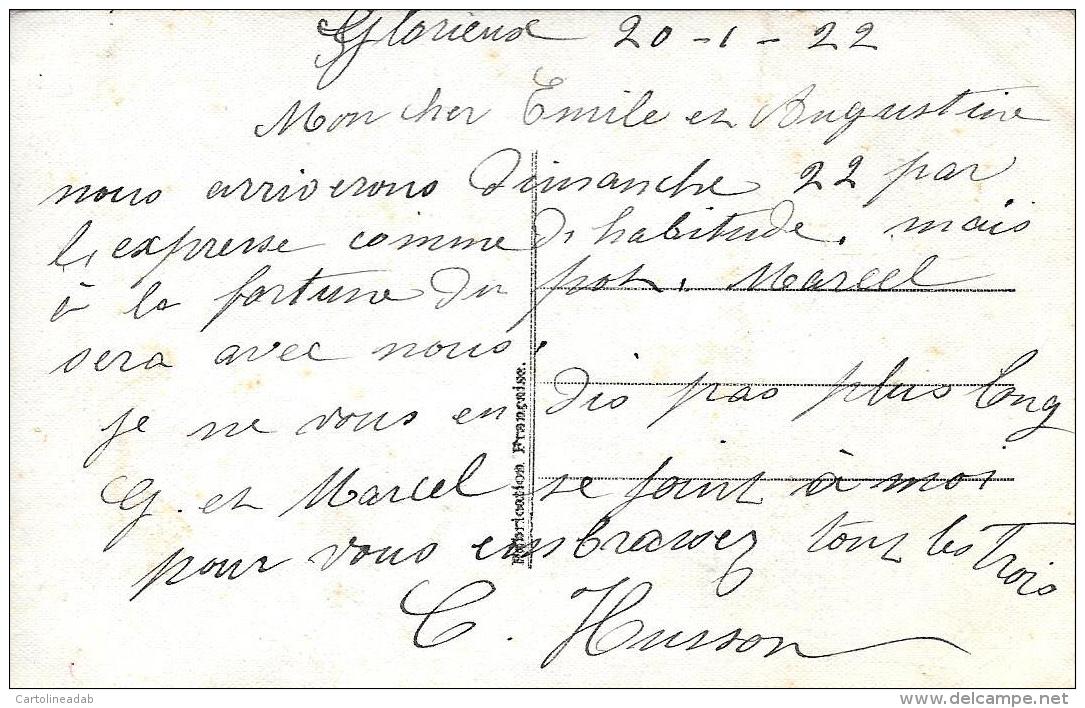 Glorieux 20-1-22
Mon cher Emile et Augustine
nous arriverons Dimanche 22 par
l, expresse comme d, habitude, mais
à la fortune du pot. Marcel
sera avec nous,
je ne vous en dis pas plus long
G. et Marcel se joint à moi
pour vous embrassez tout les trois
C. Husson
Fabrication Française.
Cartolineadab
www.delcampe.net